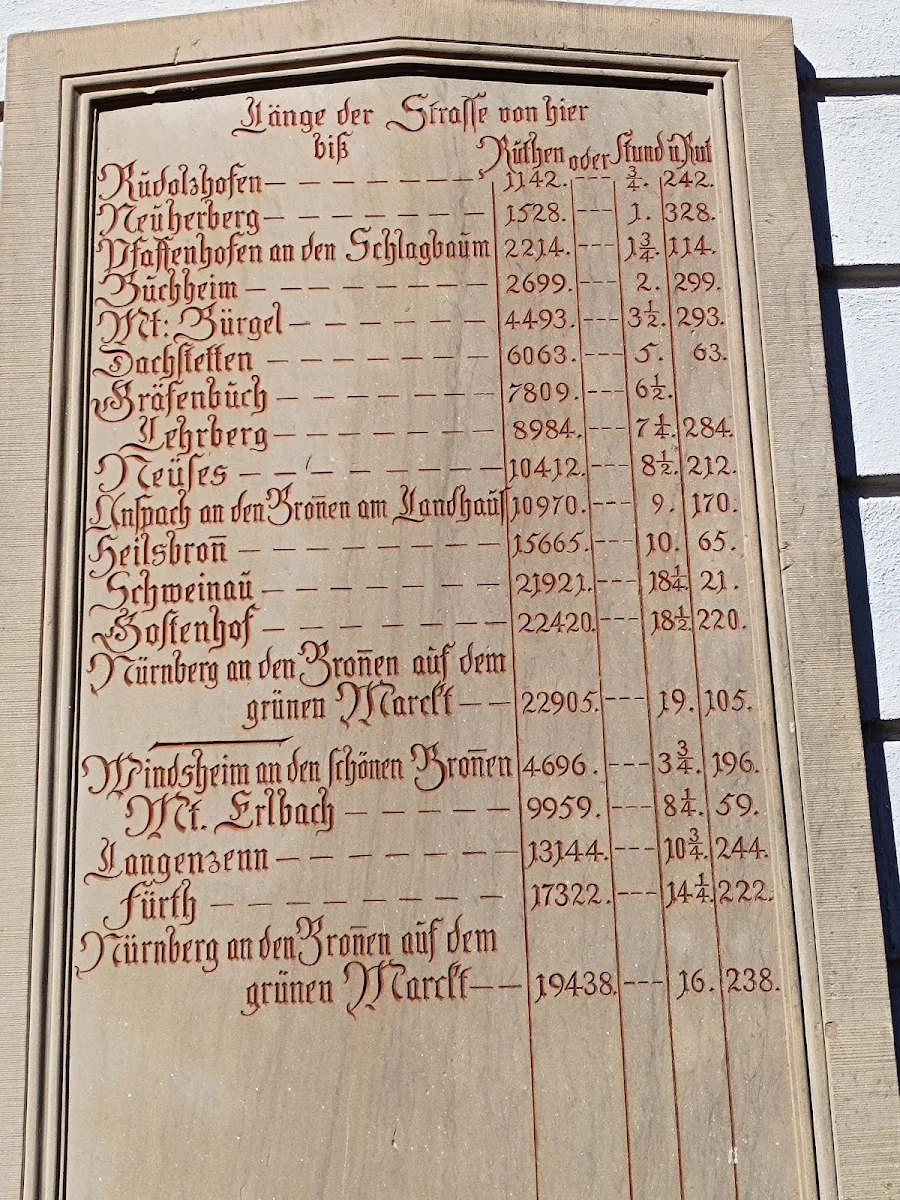 Länge der Strasse von hier
biß Rūthen oder Stund ū Rut
Rūdolzhofen — — — — — — — 1142. --- ¾. 242.
Neūherberg — — — — — — — 1528. --- 1. 328.
Pfaffenhofen an den Schlagbaūm 2214. --- 1¾. 114.
Būchheim — — — — — — — 2699. --- 2. 299.
Mt: Bürgel — — — — — — 4493. --- 3½. 293.
Dachstetten — — — — — — 6063. --- 5. 63.
Gräfenbūch — — — — — — 7809. --- 6½.
Lehrberg — — — — — — 8984. --- 7¼. 284.
Neūses — — — — — — — 10412. --- 8½. 212.
Anspach an den Broñen am Landhaūs 10970. --- 9. 170.
Heilsbroñ — — — — — — — 15665. --- 10. 65.
Schweinaū — — — — — — 21921. --- 18¼. 21.
Gostenhof — — — — — — 22420. --- 18½. 220.
Nürnberg an den Broñen aūf dem
grünen Marckt — — 22905. --- 19. 105.
Windsheim an den schönen Broñen 4696. --- 3¾. 196.
Mt. Erlbach — — — — — 9959. --- 8¼. 59.
Langenzenn — — — — — — 13144. --- 10¾. 244.
Fürth — — — — — — — 17322. --- 14¼. 222.
Nürnberg an den Broñen aūf dem
grünen Marckt — — 19438. --- 16. 238.